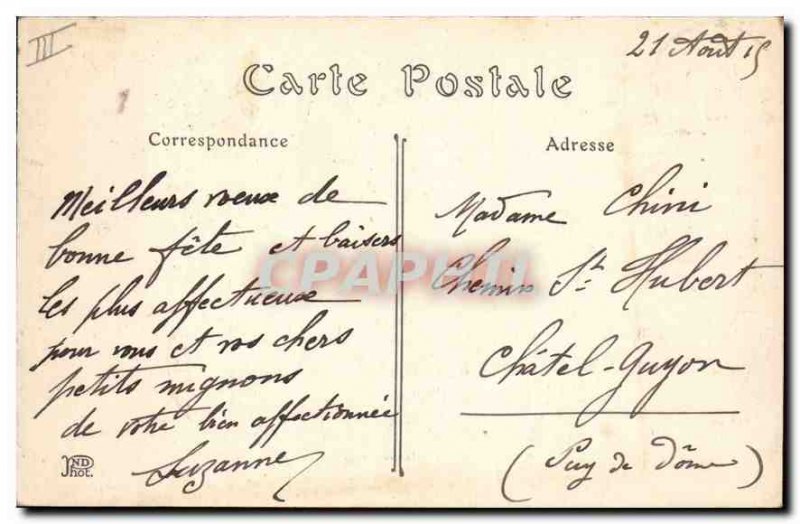 III
21 Août 15
Carte Postale
Correspondance
Adresse
Meilleurs voeux de
bonne fête et baisers
les plus affectueux
pour vous et vos chers
petits mignons
de votre bien affectionnée
Suzanne
ND
Phot.
Madame Chini
Chemin St Hubert
Châtel-Guyon
(Puy de Dôme)
CPAPHIL